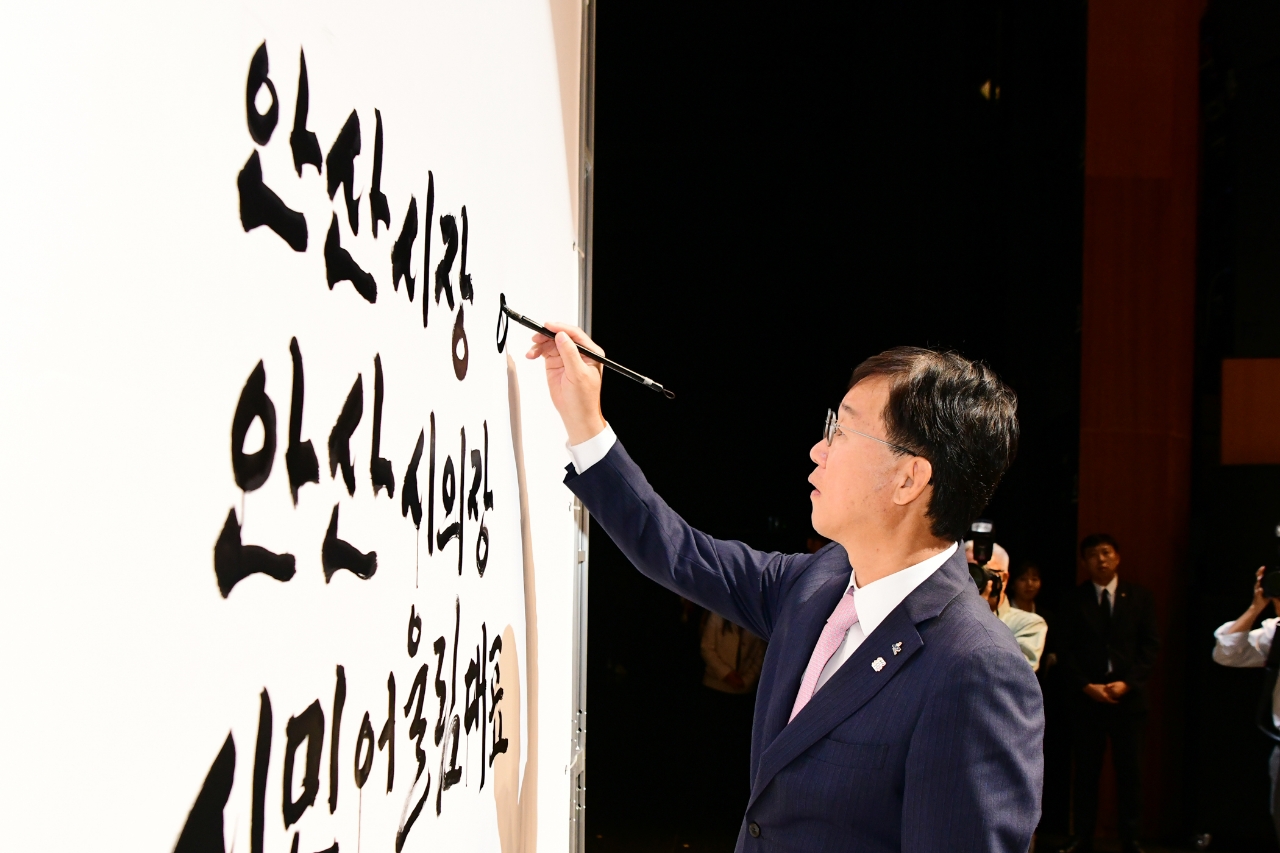 안산시장
안산시의장
시민어울림대표